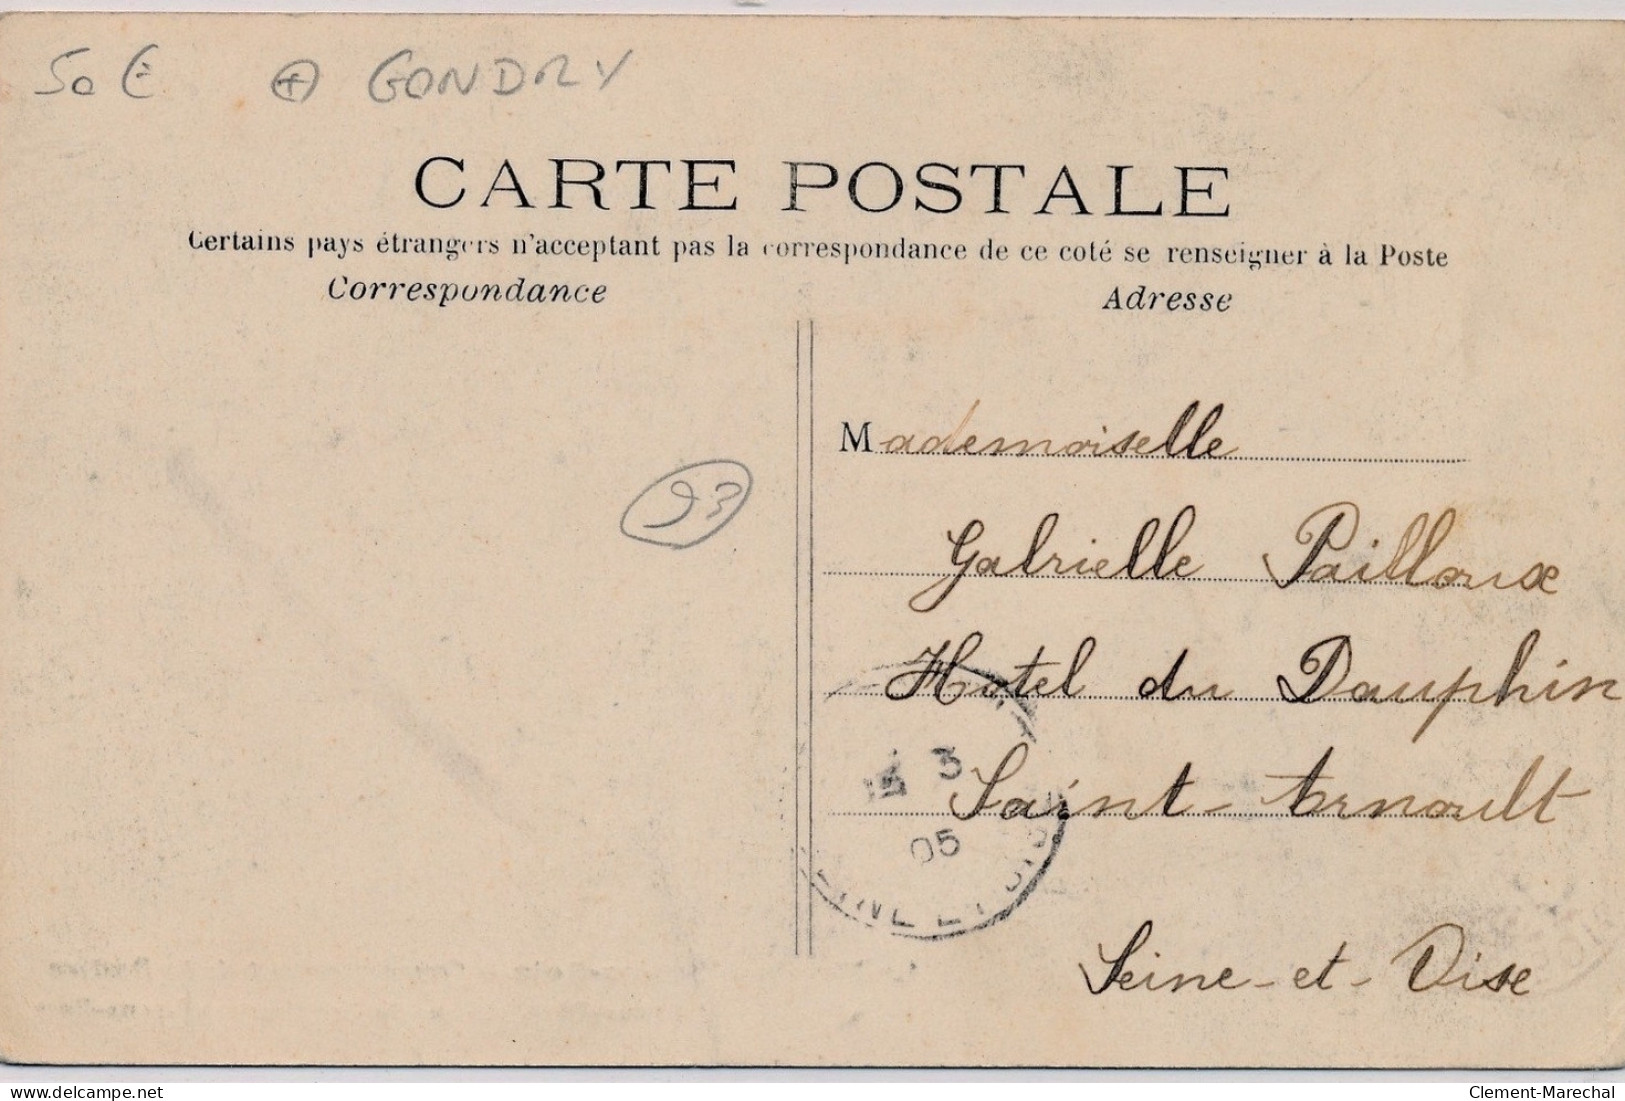 50 € + GONDRY
CARTE POSTALE
Certains pays étrangers n'acceptant pas la correspondance de ce coté se renseigner à la Poste
Correspondance
Adresse
Mademoiselle
93
Gabrielle Pailloux
Hotel du Dauphin
3
Saint-Arnoult
05
SEINE ET OISE
Seine-et-Oise
delcampe.net
Clement-Marechal